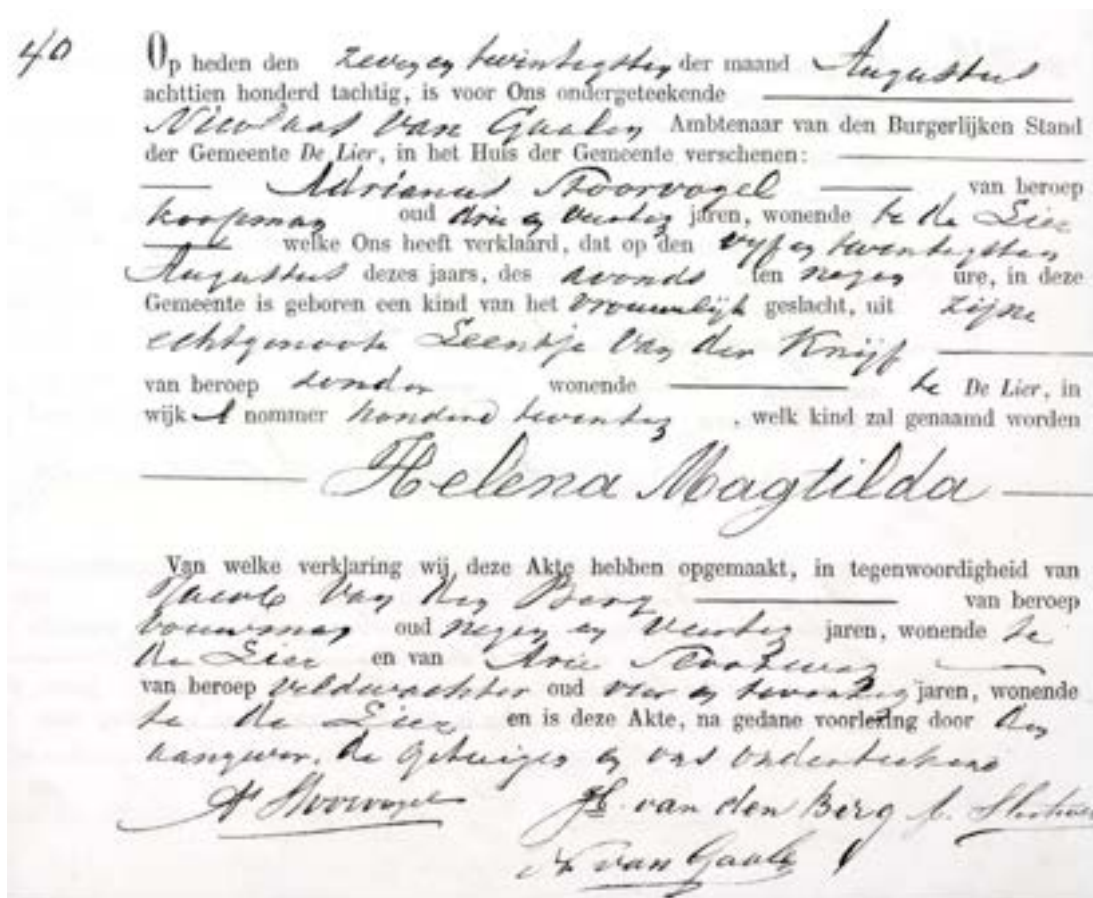 40
Op heden den zeven en twintigsten der maand Augustus
achttien honderd tachtig, is voor Ons ondergeteekende
Nicolaas van Gaalen Ambtenaar van den Burgerlijken Stand
der Gemeente De Lier, in het Huis der Gemeente verschenen:
Adrianus Noorvogel van beroep
koopman oud drie en veertig jaren, wonende te de Lier
welke Ons heeft verklaard, dat op den vyf en twintigsten
Augustus dezes jaars, des avonds ten negen ure, in deze
Gemeente is geboren een kind van het vrouwelijk geslacht, uit zijne
echtgenoote Leentje van der Knijf
van beroep zonder wonende te De Lier, in
wijk A nommer honderd twintig, welk kind zal genaamd worden
Helena Magtilda
Van welke verklaring wij deze Akte hebben opgemaakt, in tegenwoordigheid van
Jacob van den Berg van beroep
bouwman oud negen en veertig jaren, wonende te
de Lier en van Arie
van beroep veldwachter oud vier en jaren, wonende
te de Lier en is deze Akte, na gedane voorlezing door den
aangever, de getuigen en ons onderteekend
van den Berg
van Gaalen